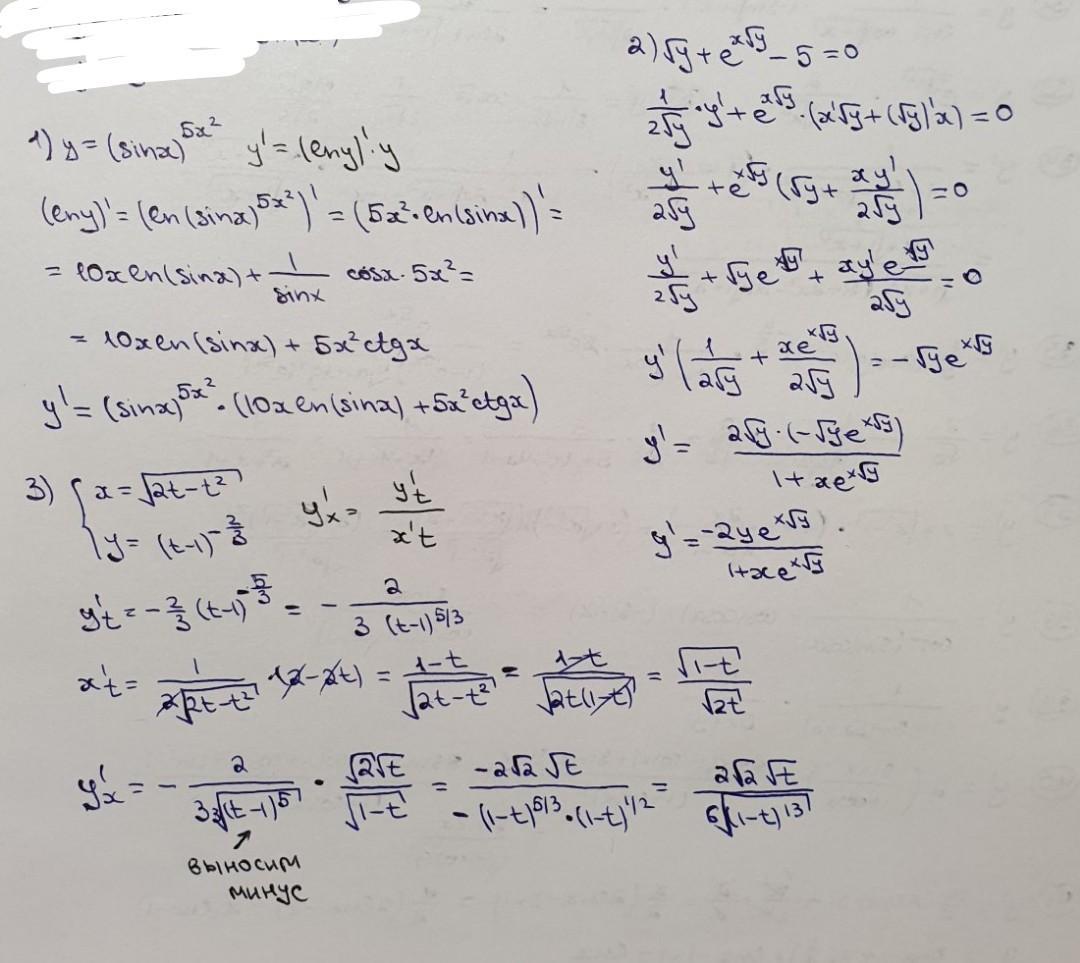 1) y = (sinx)^{5x²}   y' = (lny)'·y
(lny)' = (ln(sinx)^{5x²})' = (5x²·ln(sinx))' =
= 10xln(sinx) + \frac{1}{sinx} cosx·5x² =
= 10xln(sinx) + 5x²ctgx
y' = (sinx)^{5x²}·(10xln(sinx) + 5x²ctgx)
2) √y + e^{x√y} − 5 = 0
\frac{1}{2√y}·y' + e^{x√y}·(x'√y + (√y)'x) = 0
\frac{y'}{2√y} + e^{x√y}(√y + \frac{xy'}{2√y}) = 0
\frac{y'}{2√y} + √ye^{x√y} + \frac{xy'e^{x√y}}{2√y} = 0
y'(\frac{1}{2√y} + \frac{xe^{x√y}}{2√y}) = −√ye^{x√y}
y' = \frac{2√y·(−√ye^{x√y})}{1 + xe^{x√y}}
y' = \frac{−2ye^{x√y}}{1+xe^{x√y}}.
3) { x = \sqrt{2t−t²}   y'_x = \frac{y't}{x't}
y = (t−1)^{−\frac{2}{3}}
y't = −\frac{2}{3}(t−1)^{−\frac{5}{3}} = −\frac{2}{3 (t−1)^{5/3}}
x't = \frac{1}{2\sqrt{2t−t²}}·(2−2t) = \frac{1−t}{\sqrt{2t−t²}} = \frac{1−t}{\sqrt{2t(1−t)}} = \frac{\sqrt{1−t}}{\sqrt{2t}}
y'_x = −\frac{2}{3\sqrt[3]{(t−1)^5}} · \frac{√2√t}{\sqrt{1−t}} = \frac{−2√2 √t}{−(1−t)^{5/3}·(1−t)^{1/2}} = \frac{2√2 √t}{\sqrt[6]{(1−t)^{13}}}
выносим
минус